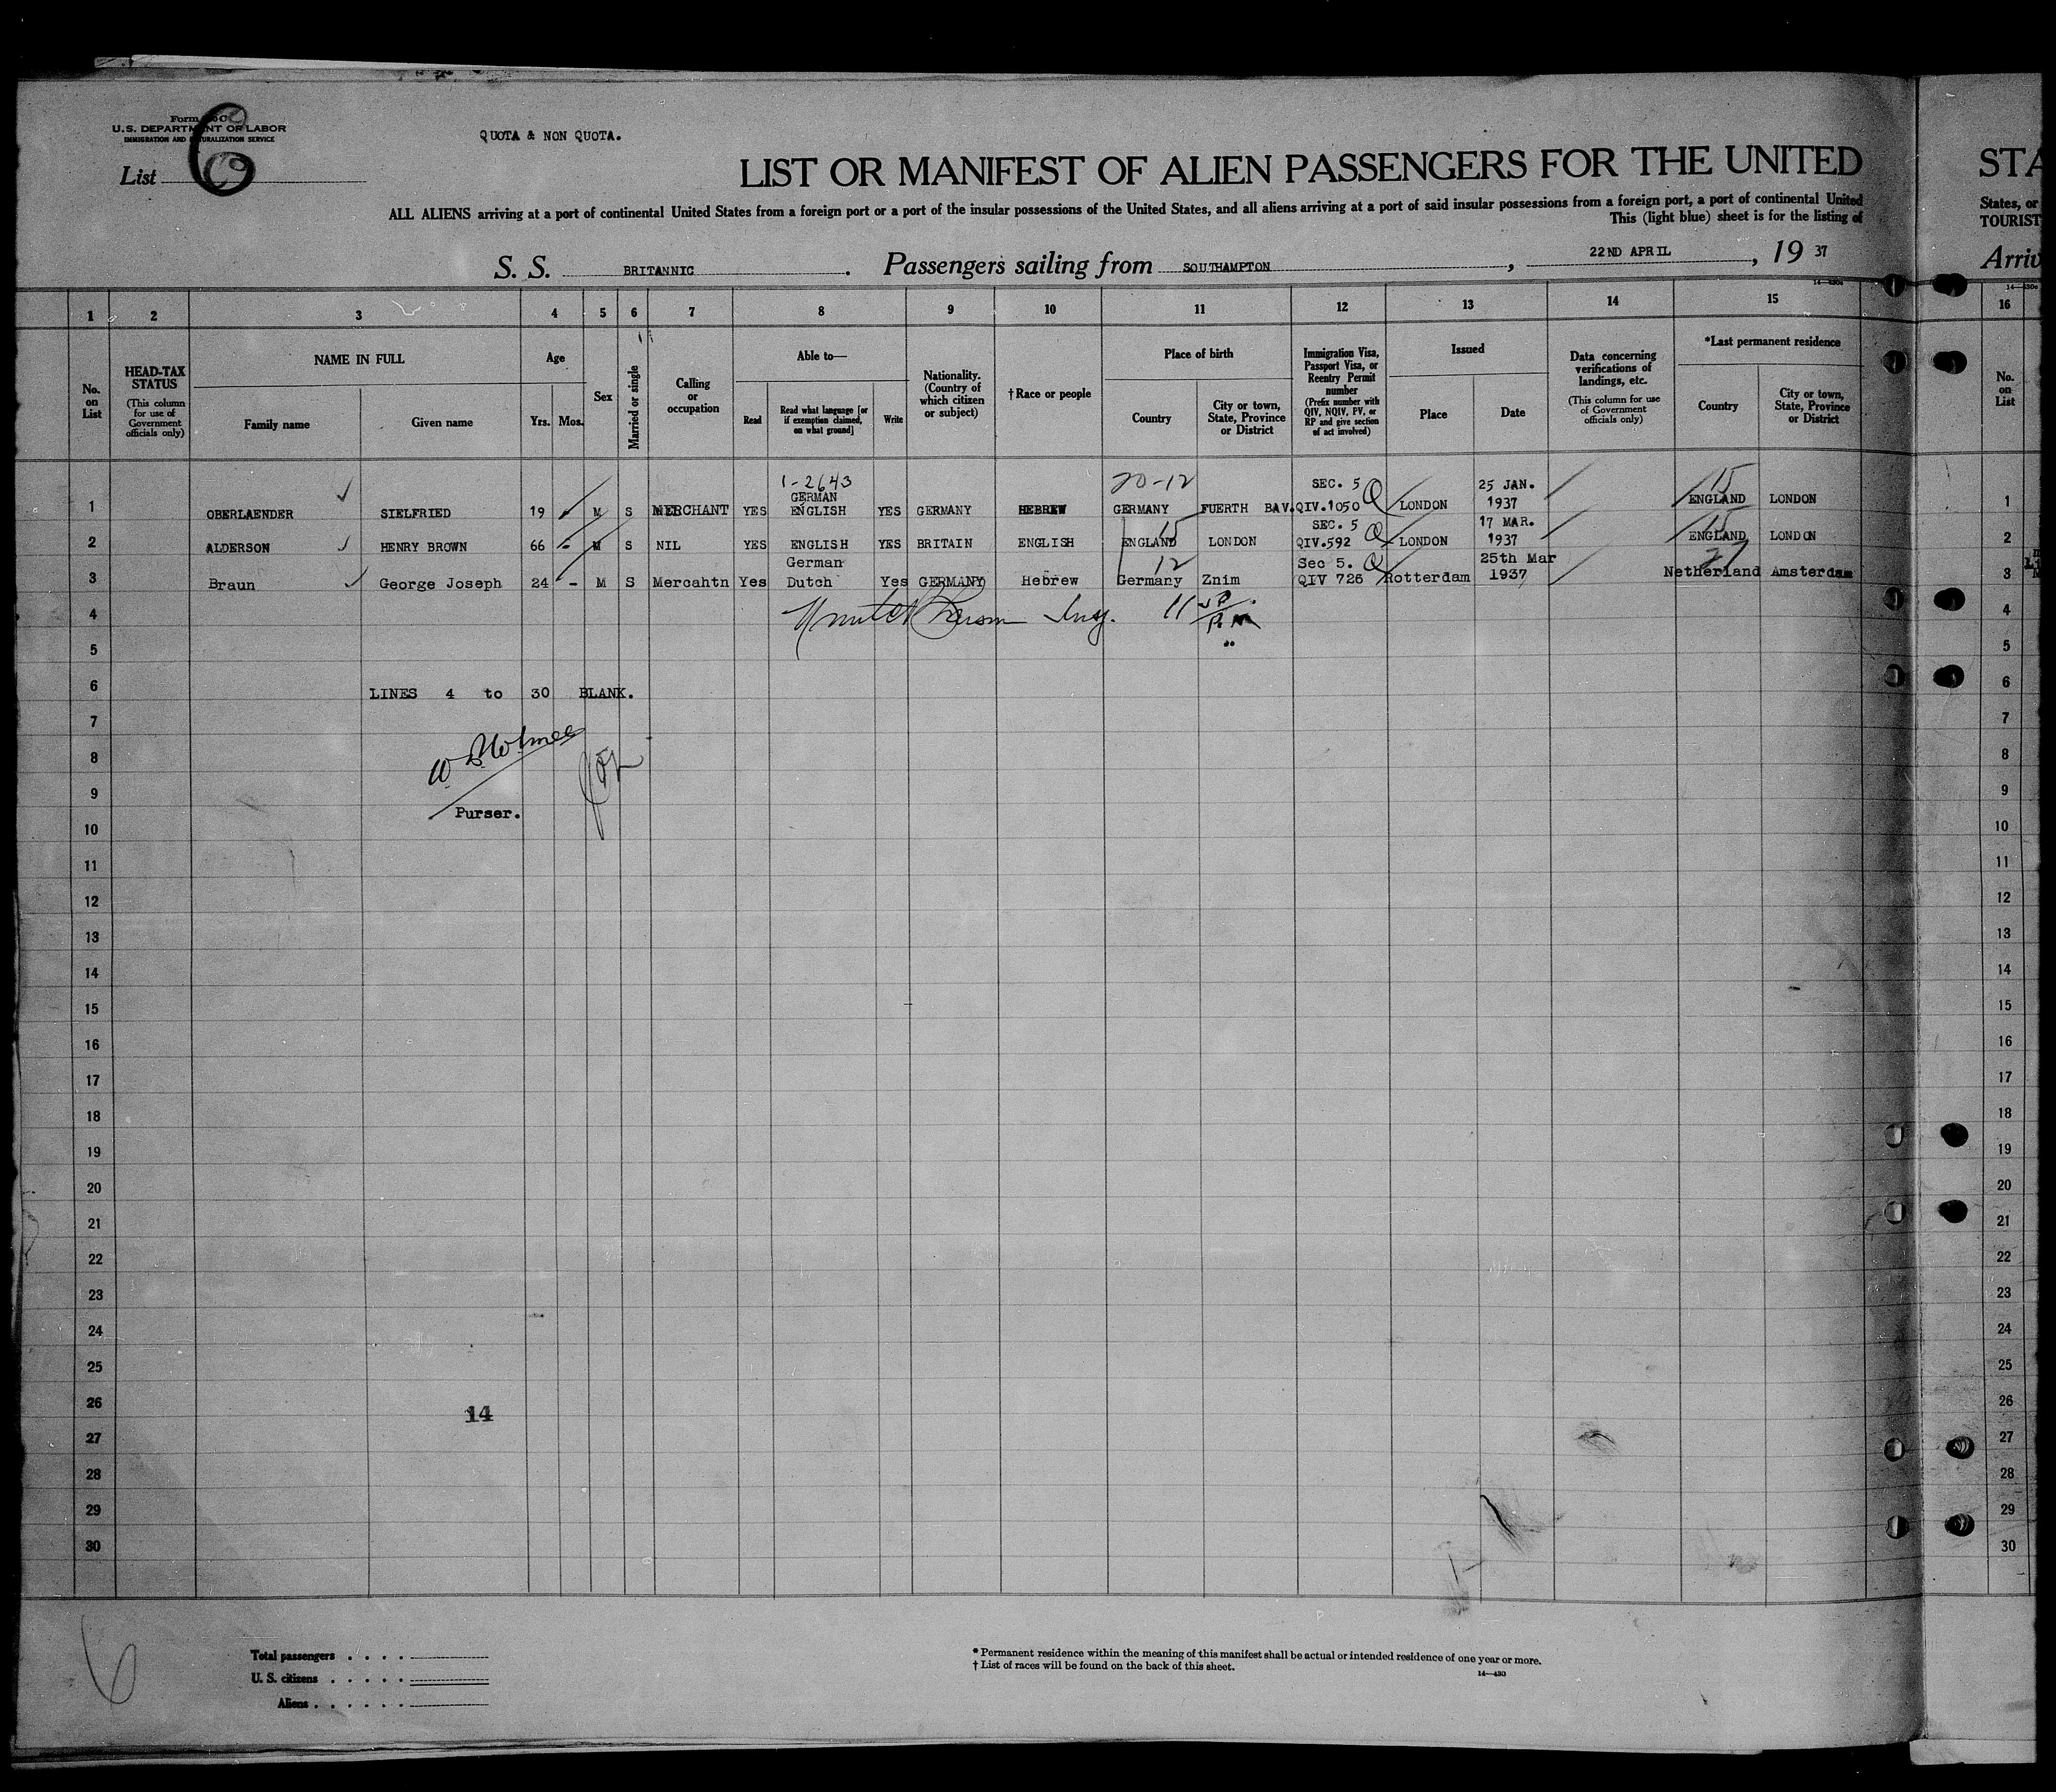 Form
U.S. DEPARTMENT OF LABOR
IMMIGRATION AND NATURALIZATION SERVICE
List 6
QUOTA & NON QUOTA.
LIST OR MANIFEST OF ALIEN PASSENGERS FOR THE UNITED
ALL ALIENS arriving at a port of continental United States from a foreign port or a port of the insular possessions of the United States, and all aliens arriving at a port of said insular possessions from a foreign port, a port of continental United
This (light blue) sheet is for the listing of
S. S. BRITANNIC. Passengers sailing from SOUTHAMPTON, 22ND APRIL, 19 37
STA
States, or
TOURIST
Arriv
14—430c
1 2 3 4 5 6 7 8 9 10 11 12 13 14 15 16
No. on List
HEAD-TAX STATUS (This column for use of Government officials only)
NAME IN FULL
Family name
Given name
Age
Yrs. Mos.
Sex
Married or single
Calling or occupation
Able to—
Read
Read what language [or if exemption claimed, on what ground]
Write
Nationality. (Country of which citizen or subject)
†Race or people
Place of birth
Country
City or town, State, Province or District
Immigration Visa, Passport Visa, or Reentry Permit number (Prefix number with QIV, NQIV, PV, or RP and give section of act involved)
Issued
Place
Date
Data concerning verifications of landings, etc. (This column for use of Government officials only)
*Last permanent residence
Country
City or town, State, Province or District
No. on List
1-2643 20-12 SEC. 5 Q 25 JAN. 15
GERMAN
1 OBERLAENDER SIELFRIED 19 M S MERCHANT YES ENGLISH YES GERMANY HEBREW GERMANY FUERTH BAV. QIV.1050 LONDON 1937 ENGLAND LONDON 1
15 SEC. 5 Q 17 MAR. 15
2 ALDERSON HENRY BROWN 66 - M S NIL YES ENGLISH YES BRITAIN ENGLISH ENGLAND LONDON QIV.592 LONDON 1937 ENGLAND LONDON 2
German 12 Sec 5. Q 25th Mar 27
3 Braun George Joseph 24 - M S Mercahtn Yes Dutch Yes GERMANY Hebrew Germany Znim QIV 726 Rotterdam 1937 Netherland Amsterdam 3
4 11 4
5 5
6 LINES 4 to 30 BLANK. 6
7 7
W Holmes
8 8
9 9
Purser.
10 10
11 11
12 12
13 13
14 14
15 15
16 16
17 17
18 18
19 19
20 20
21 21
22 22
23 23
24 24
25 25
26 26
14
27 27
28 28
29 29
30 30
6
Total passengers
U. S. citizens
Aliens
* Permanent residence within the meaning of this manifest shall be actual or intended residence of one year or more.
† List of races will be found on the back of this sheet.
14—430